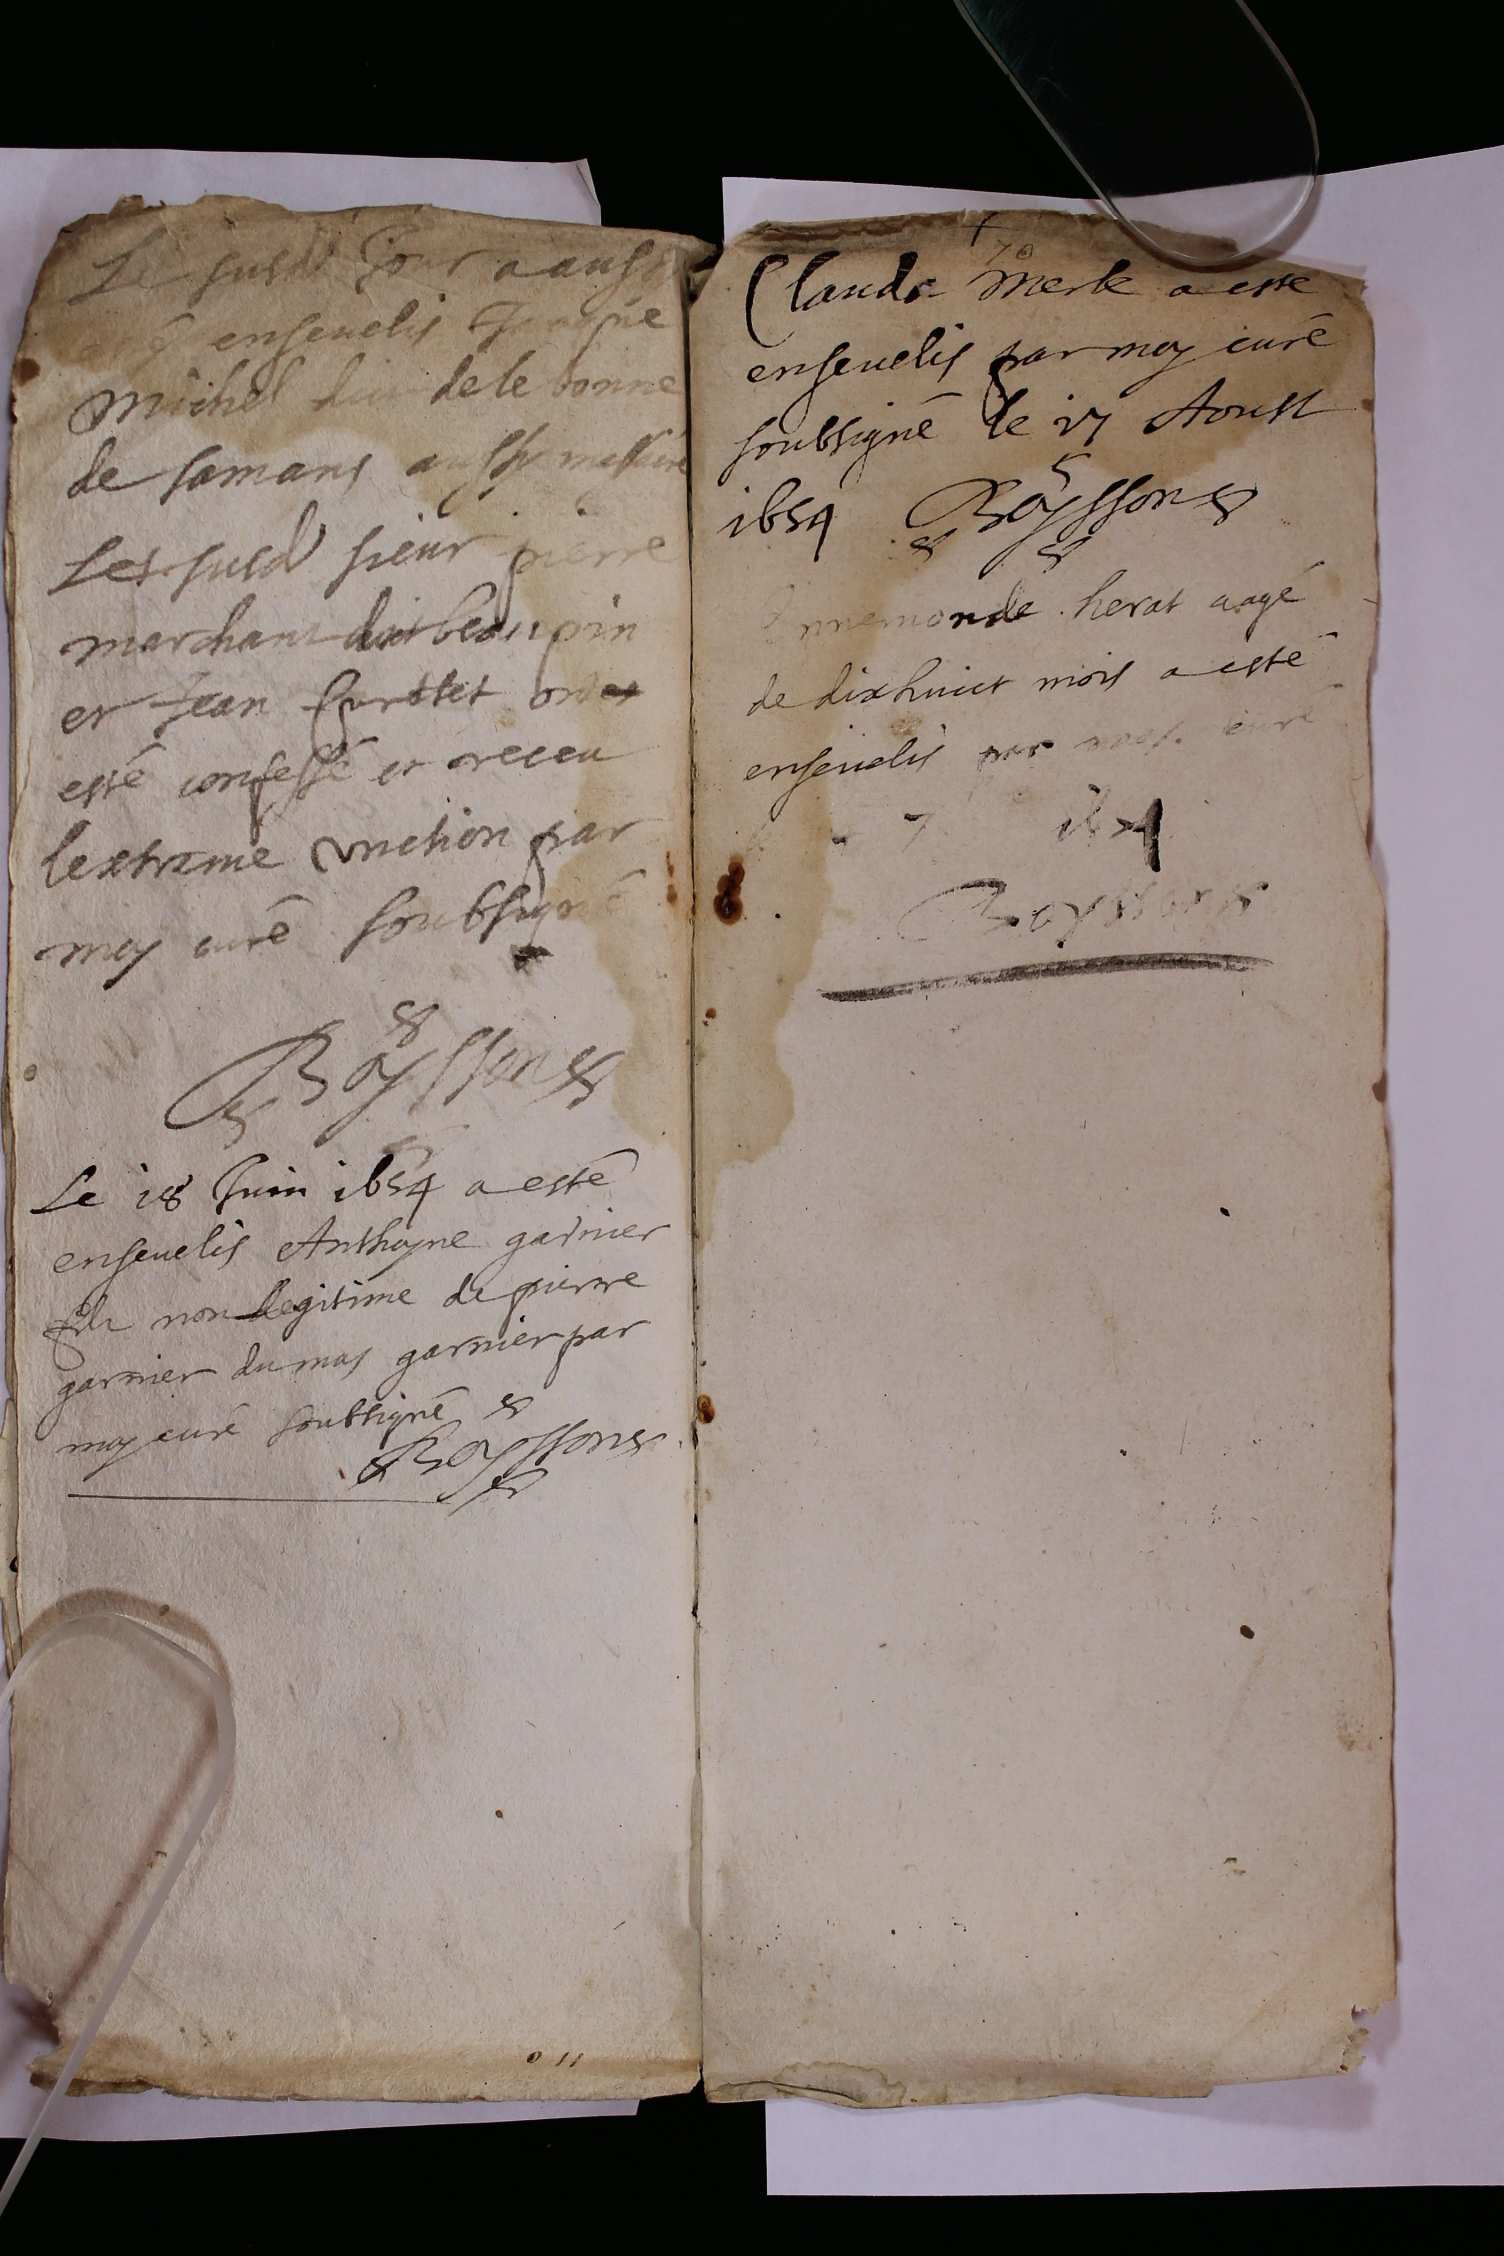 Le susd Jour a aussy
esté enseuelis
Michel de le bonne
de samans aussy
Les susd sieur pierre
marchant dit beaupin
et Jean ont
esté confessé et receu
lextreme Onction par
moy curé soubsigné
Boyssons
Le 18 Juin 1654 a esté
enseuelis Anthoyne garnier
filz non legitime de pierre
garnier du mas garnier par
moy curé soubsigné
Boyssons
011
70
Claude Merle a esté
enseuelis par moy curé
soubsigné le 17 Aoust
1654 Boyssons
Ennemonde herat aagé
de dixhuict mois a esté
enseuelis par moy curé
7 1654
Boyssons